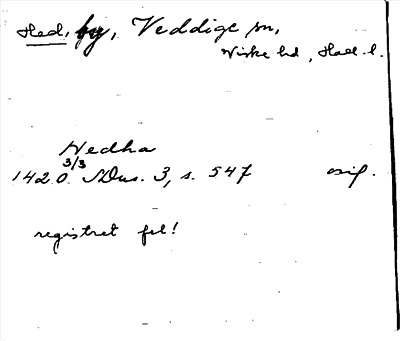 Hed, by, Veddige sn,
Viske hd, Hall. l.
Hedha
1420 3/3 SDns. 3, s. 547 orig.
registret fel!